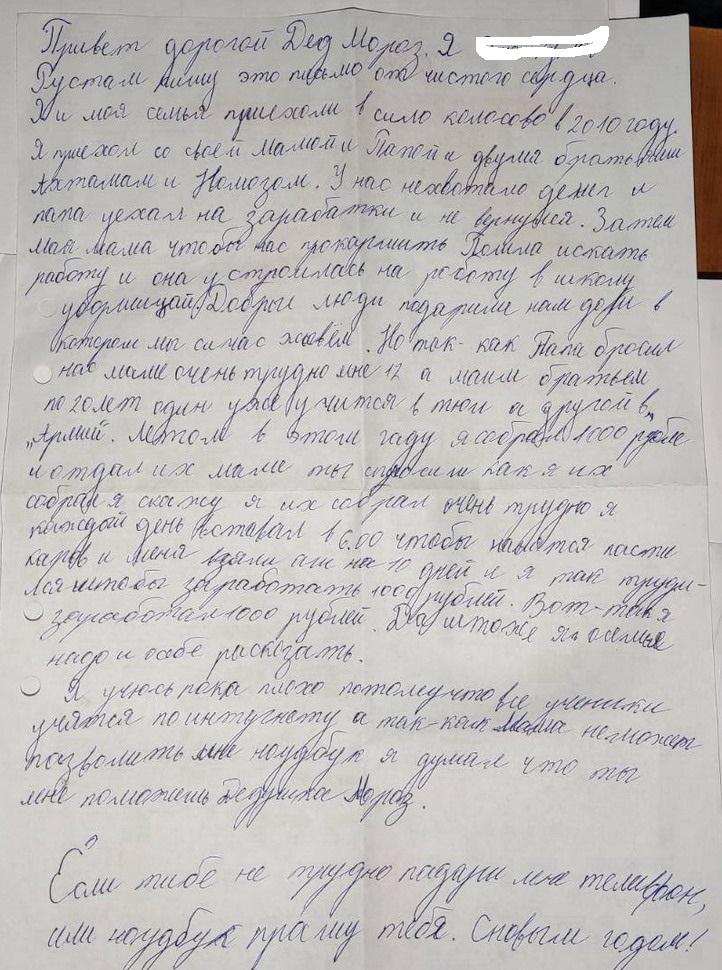 Привет дорогой Дед Мороз. Я
Рустам пишу это письмо от чистого сердца.
Я и моя семья приехоли в сило колосово в 2010 году.
Я приехол со своей мамой и Папой и двумя братьями
Ахтамам и Номозом. У нас нехвотало денег и
папа уехал на зарабатки и не вернулся. Затем
май мама чтобы нас прокармить Пошла искать
работу и она устроилась на роботу в школу
уборшицай. Добрыи люди подарили нам дом в
котером мы сичас живём. Но так-как Папа бросил
нас маме очень трудно мне 12 а маим братьем
по 20 лет один уже учится в тюи а другой в
"Армий. Летом в этом гаду я собрал 1000 рубле
и отдал их маме ты спросиш как я их
собрал я скажу я их собрал очень трудно я
каждый день вставал в 6.00 чтобы пасти
каров и меня взяли аж на 10 дней и я так труди-
лся штобы зароботать 1000 рублей. Вот-так я
зароботал 1000 рублей. Да штоже я о семье
надо и о себе расказать.
Я учюсь пока плохо потомучто все ученики
учятся по интугнету а так-как Мама неможет
позволить мне ноудбук я думал что ты
мне поможешь Дедушка Мороз.
Если тибе не трудно падари мне телифон,
или ноудбук прашу тебя. Сновым годом!